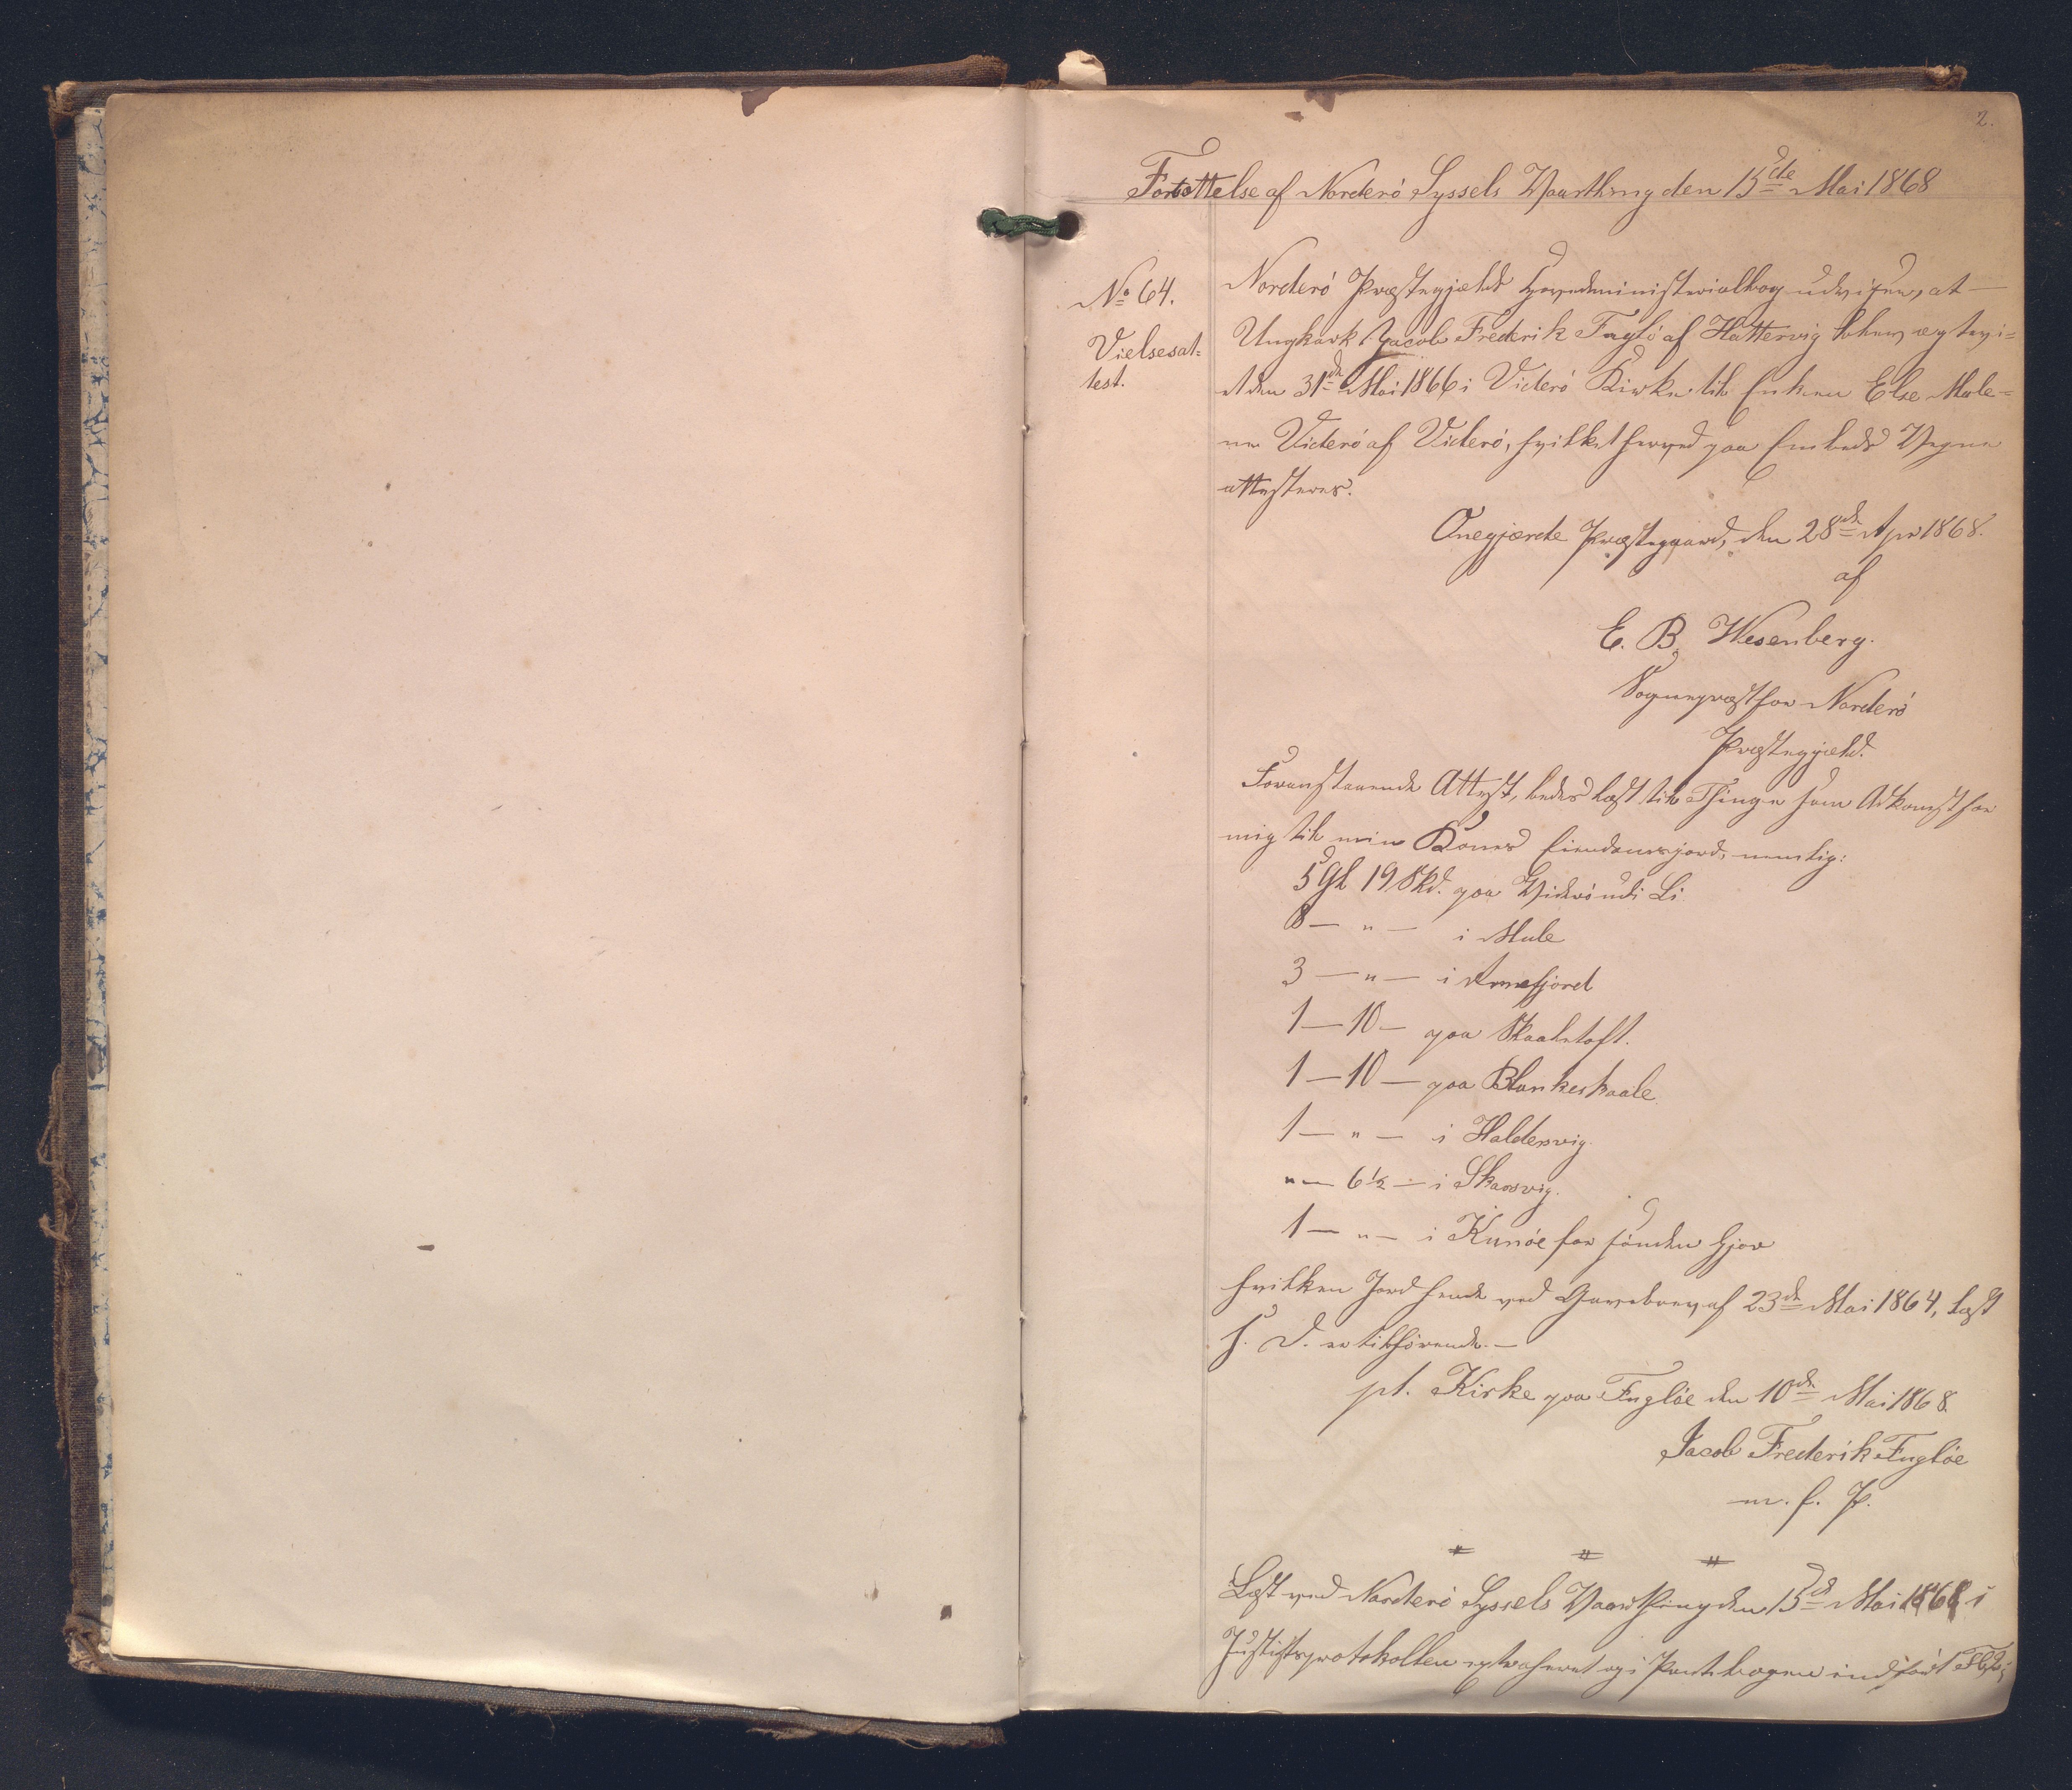 2.
Fortsættelse af Norderö Syssels Vaarthing den 15de Mai 1868
No 64.
Vielsesat-
test.
Norderö Præstegjælds Hovedministerialbog udviser, at
Ungkarl Jacob Frederik Fuglö af Hattervig blev ægtevi-
et den 31de Mai 1866 i Viderö Kirke til Enken Else Male-
ne Viderö af Viderö, hvilket herved paa Embeds Vegne
attesteres.
Önegjærde Præstegaard, den 28de Apr 1868.
af
E. B. Wesenberg.
Sognepræst for Norderö
Præstegjæld.
Foranstaaende Attest, bedes læst til Thinge som Adkomst for
mig til min Kones Eiendomsjord, nemlig:
5 Gl 19 Skd. paa Viderö udi Li
8 — " — i Mule
3 — " — i Arnefjord
1 — 10 — paa Skaaletoft.
1 — 10 — paa Blankeskaale.
1 — " — i Haldersvig.
" — 6½ — i Skaarvig.
1 — " — i Kunöe for sönden Gjov
hvilken Jord hende ved Gavebrev af 23de Mai 1864, læst
s. D. er tilhörende. —
pt. Kirke paa Fuglöe den 10de Mai 1868.
Jacob Frederik Fuglöe
m. f. P.
" " "
Læst ved Norderö Syssels Vaarthing den 15de Mai 1868 i
Justitsprotokollen extraheret og i Pantebogen indfört